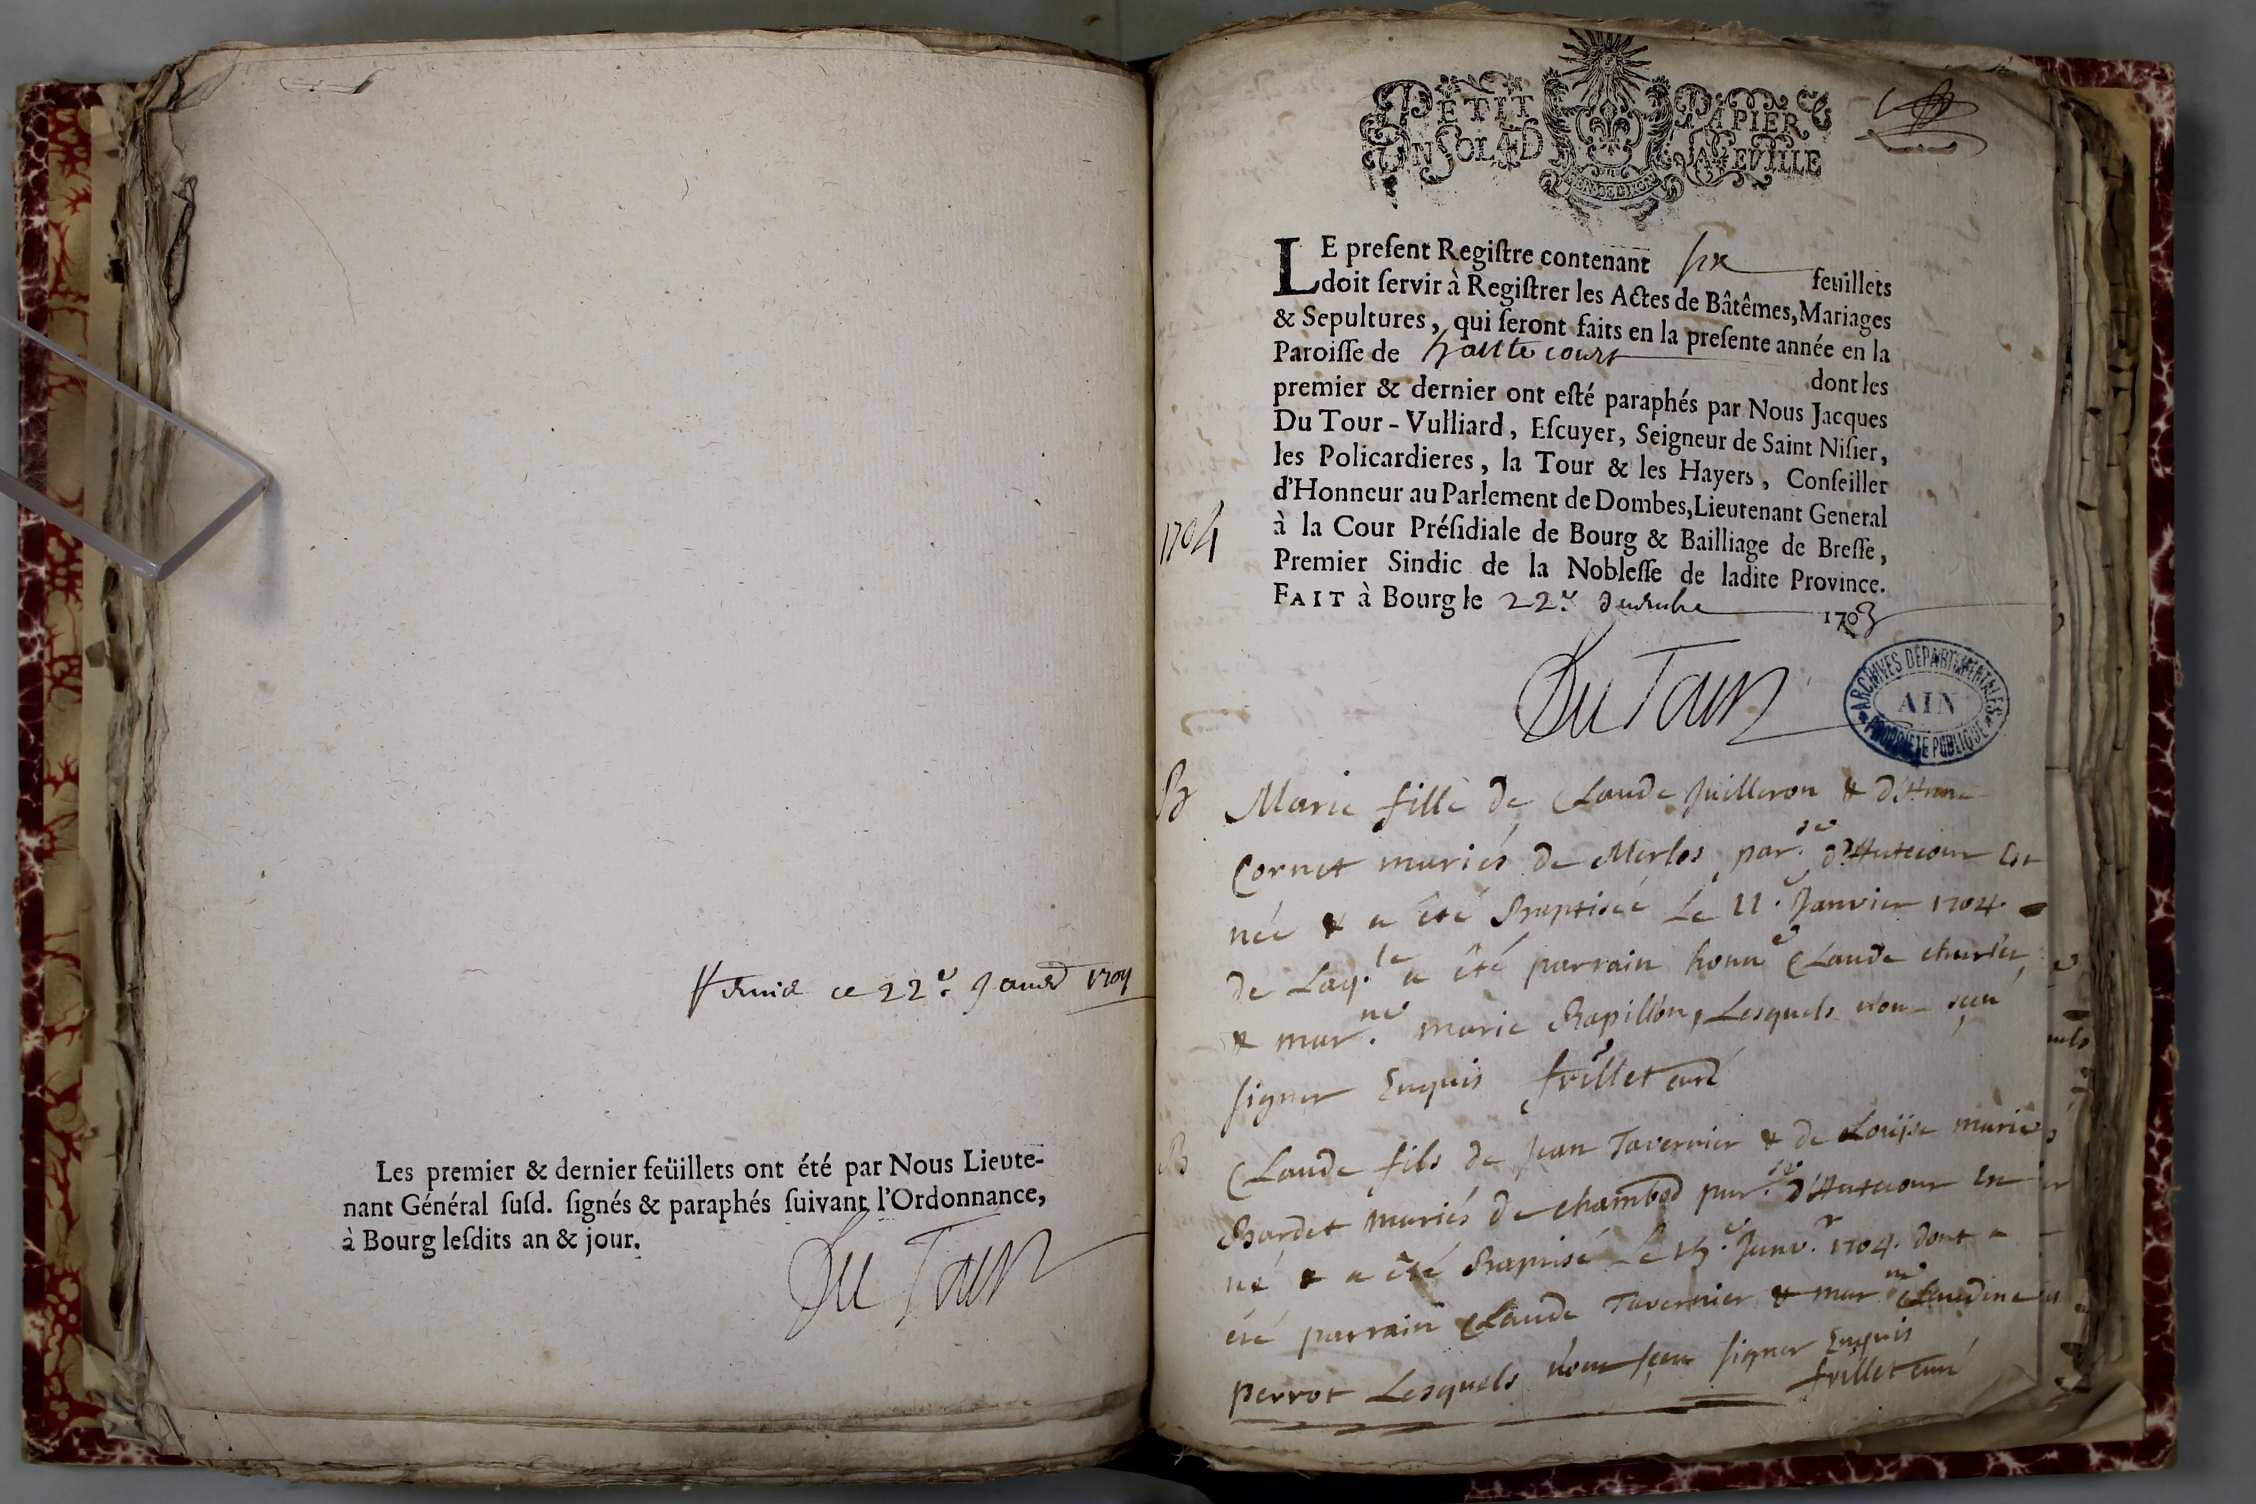 ce 22e 1704
Les premier & dernier feüillets ont été par Nous Lieute-
nant Général susd. signés & paraphés suivant l'Ordonnance,
à Bourg lesdits an & jour.
Du Tour
PETIT PAPIER
UN SOL 4D LA FEUILLE
LE present Registre contenant six feuillets
doit servir à Registrer les Actes de Bâtêmes, Mariages
& Sepultures, qui seront faits en la presente année en la
Paroisse de hautecourt dont les
premier & dernier ont esté paraphés par Nous Jacques
Du Tour-Vulliard, Escuyer, Seigneur de Saint Nisier,
les Policardieres, la Tour & les Hayers, Conseiller
d'Honneur au Parlement de Dombes, Lieutenant General
à la Cour Présidiale de Bourg & Bailliage de Bresse,
Premier Sindic de la Noblesse de ladite Province.
FAIT à Bourg le 22e decembre 1703
1704
Du Tour
ARCHIVES DÉPARTEMENTALES
AIN
PROPRIÉTÉ PUBLIQUE
B Marie fille de Claude Juilleron & d'Anne
Cornet mariés de Merlos par.se d'Autecour Est
née & a été Baptisée Le 11.e Janvier 1704.
de Laq.le a été parrain hon.e Claude
& mar.ne marie Rapillon, Lesquels non sçeu
signer Enquis frillet curé
B Claude fils de Jean Tavernier & de Loüise marie
Bardet mariés de chambod par.se d'Autecour Est
né & a été Baptisé Le 15.e Janv.r 1704. dont a
été parrain Claude Tavernier & mar.ne Claudine
perrot Lesquels n'ont sçeu signer Enquis
frillet curé